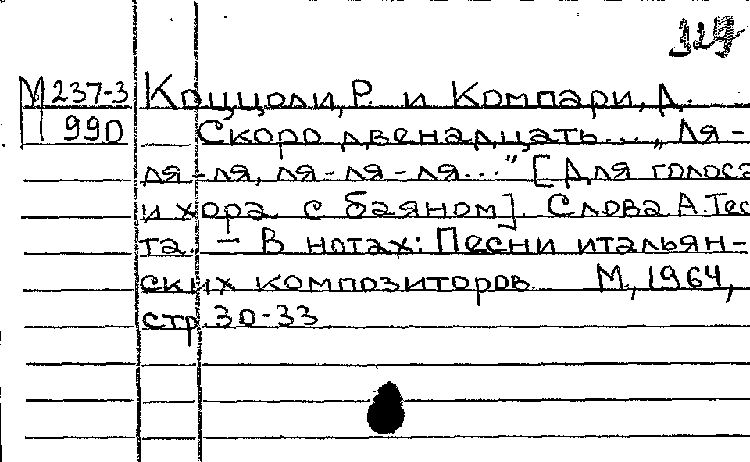 329
М237-3 Коццоли, Р. и Компари, Д.
990 Скоро двенадцать... „Ля-
ля-ля, ля-ля-ля..." [Для голоса
и хора с баяном]. Слова А.Тес
та. — В нотах: Песни итальян-
ских композиторов М, 1964,
стр.30-33